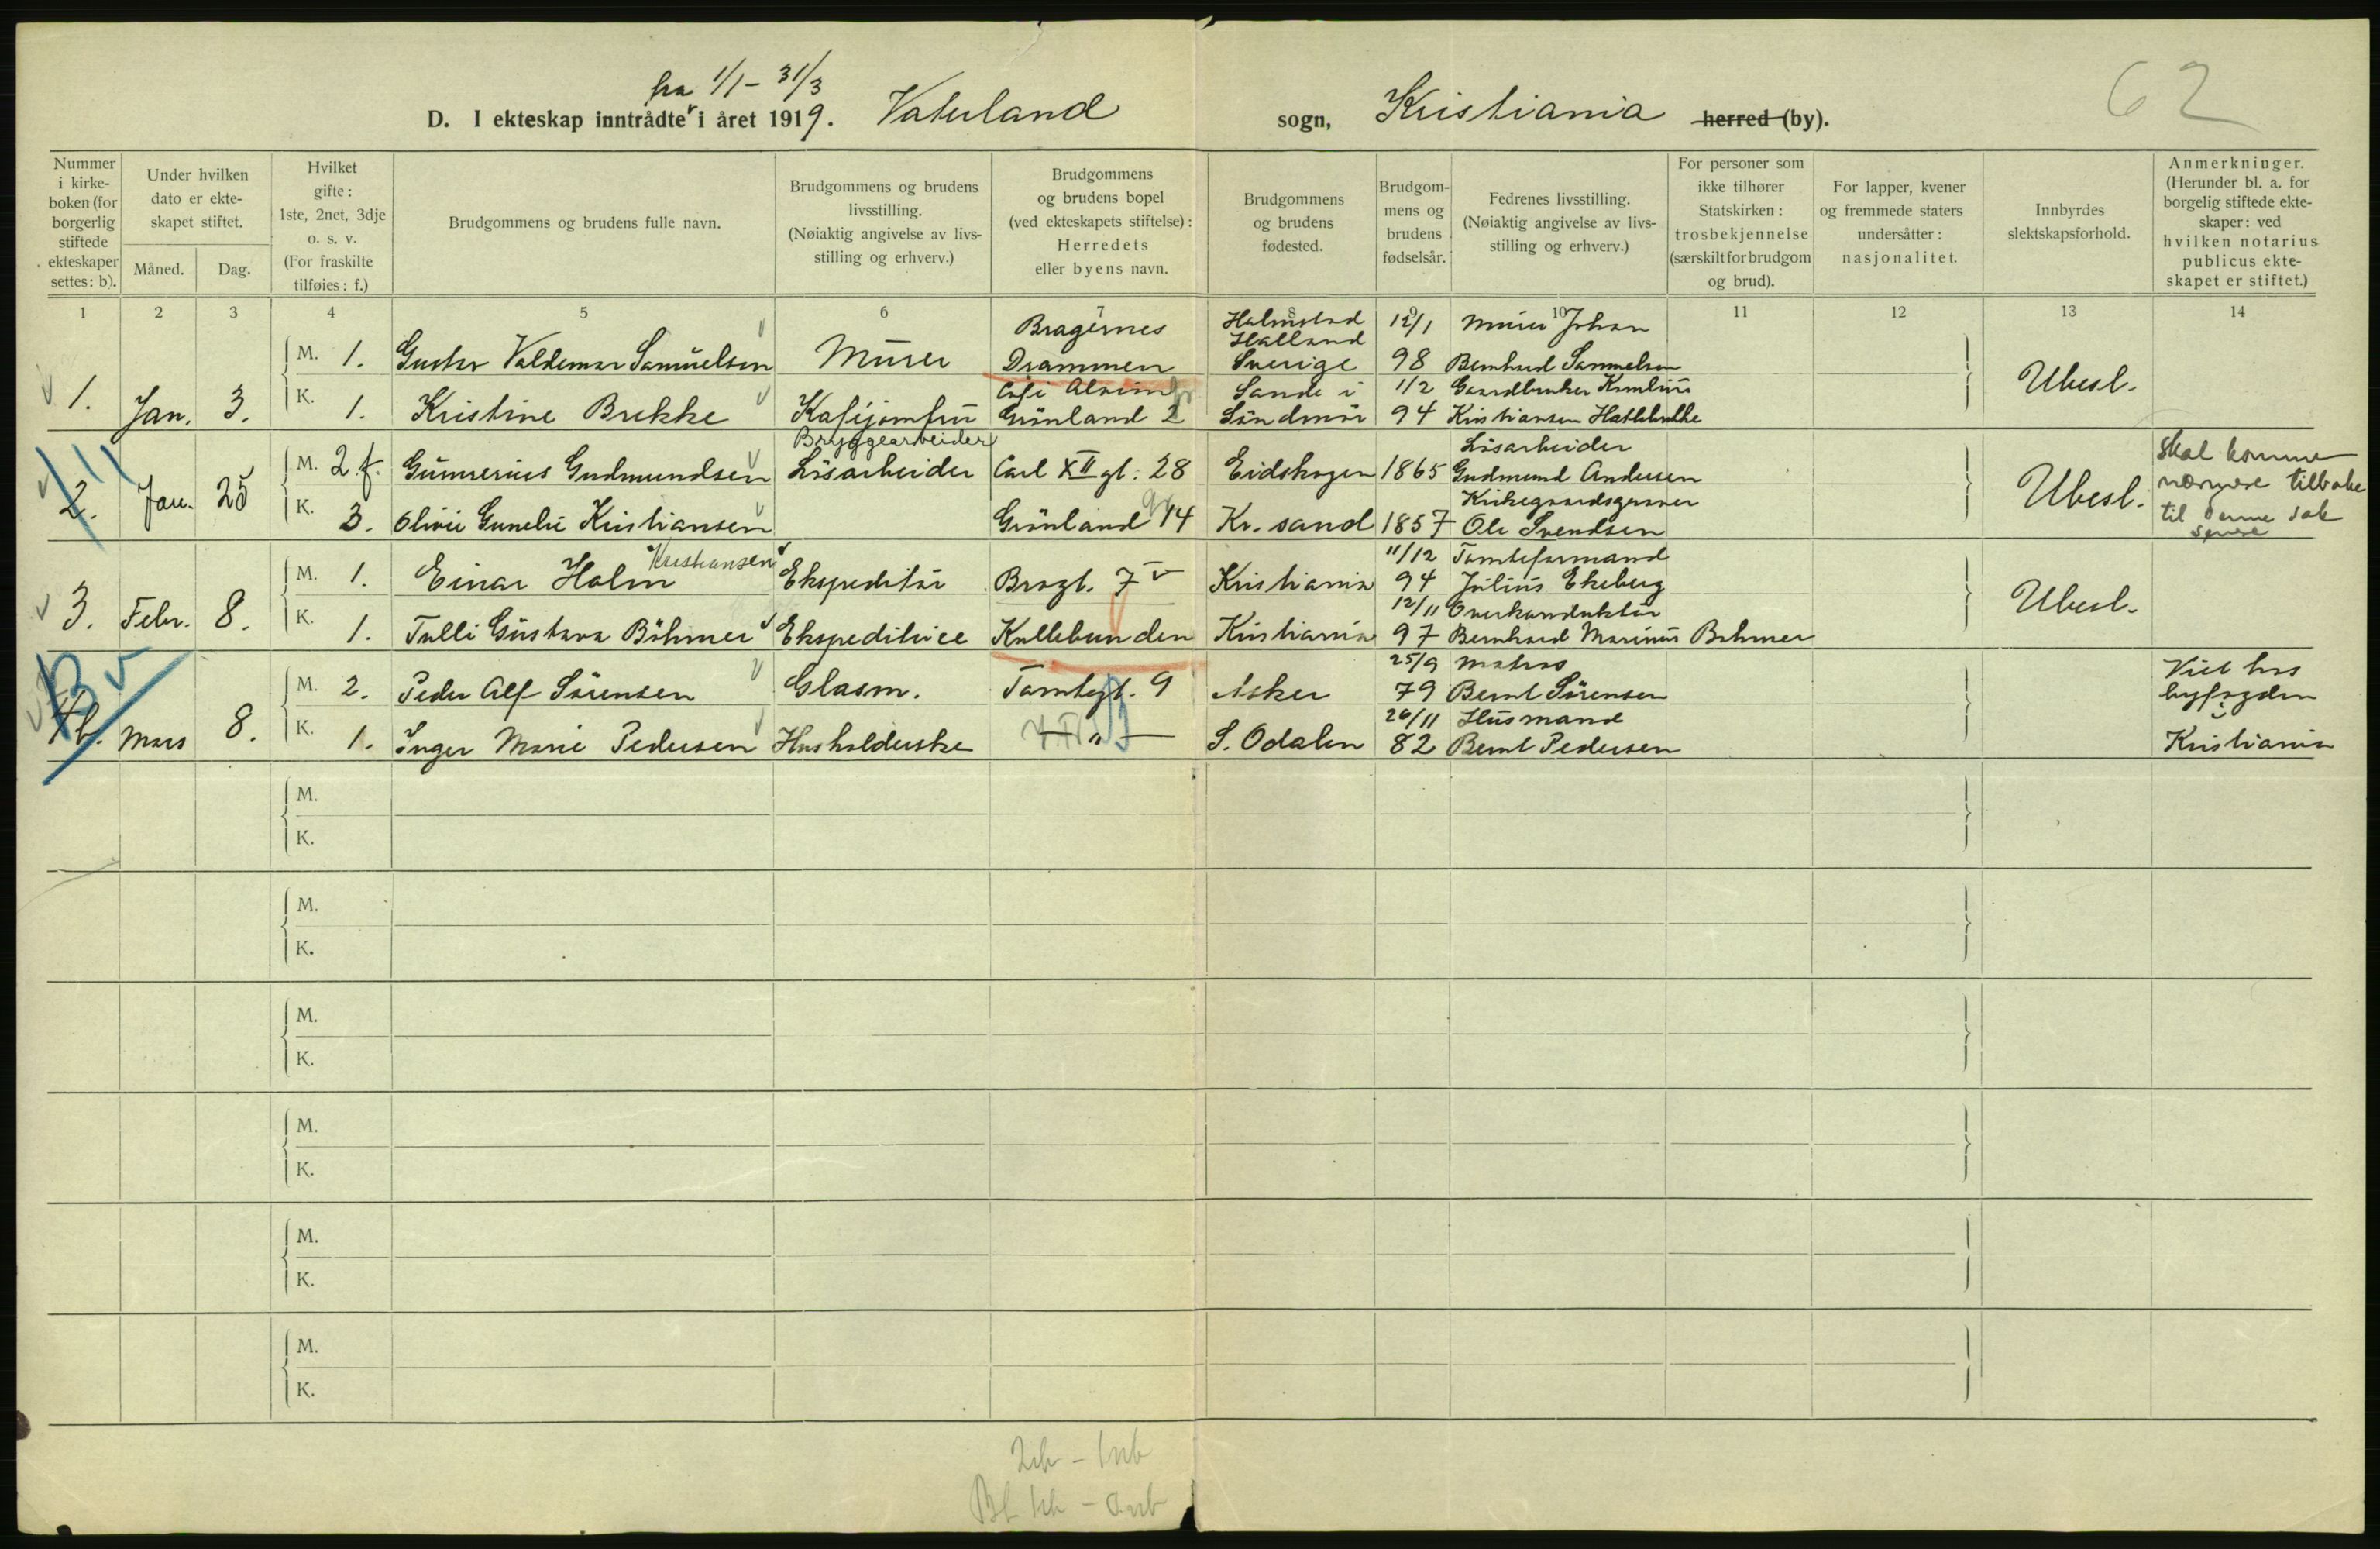 fra 1/1 - 31/3
D. I ekteskap inntrådte i året 1919. Vaterland sogn, Kristiania herred (by). 62
Nummer i kirke-boken (for borgerlig stiftede ekteskaper settes: b).
Under hvilken dato er ekte-skapet stiftet.
Måned. Dag.
Hvilket gifte: 1ste, 2net, 3dje o. s. v. (For fraskilte tilføies: f.)
Brudgommens og brudens fulle navn.
Brudgommens og brudens livsstilling. (Nøiaktig angivelse av livs-stilling og erhverv.)
Brudgommens og brudens bopel (ved ekteskapets stiftelse): Herredets eller byens navn.
Brudgommens og brudens fødested.
Brudgom-mens og brudens fødselsår.
Fedrenes livsstilling. (Nøiaktig angivelse av livs-stilling og erhverv.)
For personer som ikke tilhører Statskirken: trosbekjennelse (særskilt for brudgom og brud).
For lapper, kvener og fremmede staters undersåtter: nasjonalitet.
Innbyrdes slektskapsforhold.
Anmerkninger. (Herunder bl. a. for borgelig stiftede ekte-skaper: ved hvilken notarius publicus ekte-skapet er stiftet.)
1 2 3 4 5 6 7 8 9 10 11 12 13 14
Bragernes Halmstad 12/1 Murer Johan
Halland
M. 1. Gustav Valdemar Samuelsen Murer Drammen Sverige 98 Bernhard Sammelsen
1. Jan. 3. Ubesl.
Café Sande i 1/2 Gaardbruker
K. 1. Kristine Brekke Kaféjomfru Grönland 2 Söndmör 94 Kristiansen
Bryggearbeider Lösarbeider
M. 2 f. Gunnerius Gudmundsen Lösarbeider Carl XII gt. 28 Eidskogen 1865 Gudmund Andersen
2. Jan. 25 Ubesl. Skal komme nærmere tilbake til denne sak senere
Kirkegaardsgraver
K. 3. Olivie Kristiansen Grönland 14 Kr. sand 1857 Ole Svendsen
Kristiansen 11/12 Tomteformand
M. 1. Einar Holm Ekspeditör Brogt. 7 Kristiania 94 Julius Ekeberg
3. Febr. 8. Ubesl.
12/11 Overkonduktör
K. 1. Tulli Gustava Böhmer Ekspeditrice Kullebunden Kristiania 97 Bernhard Marinus Böhmer
25/9 Matros
M. 2. Peder Alf Sörensen Glasm. Tomtegt. 9 Asker 79 Bernt Sörensen
1b. Mars 8. Viet hos byfogden i Kristiania
26/11 Husmand
K. 1. Inger Marie Pedersen Husholderske — " — S. Odalen 82 Bernt Pedersen
M.
K.
M.
K.
M.
K.
M.
K.
M.
K.
M.
K.